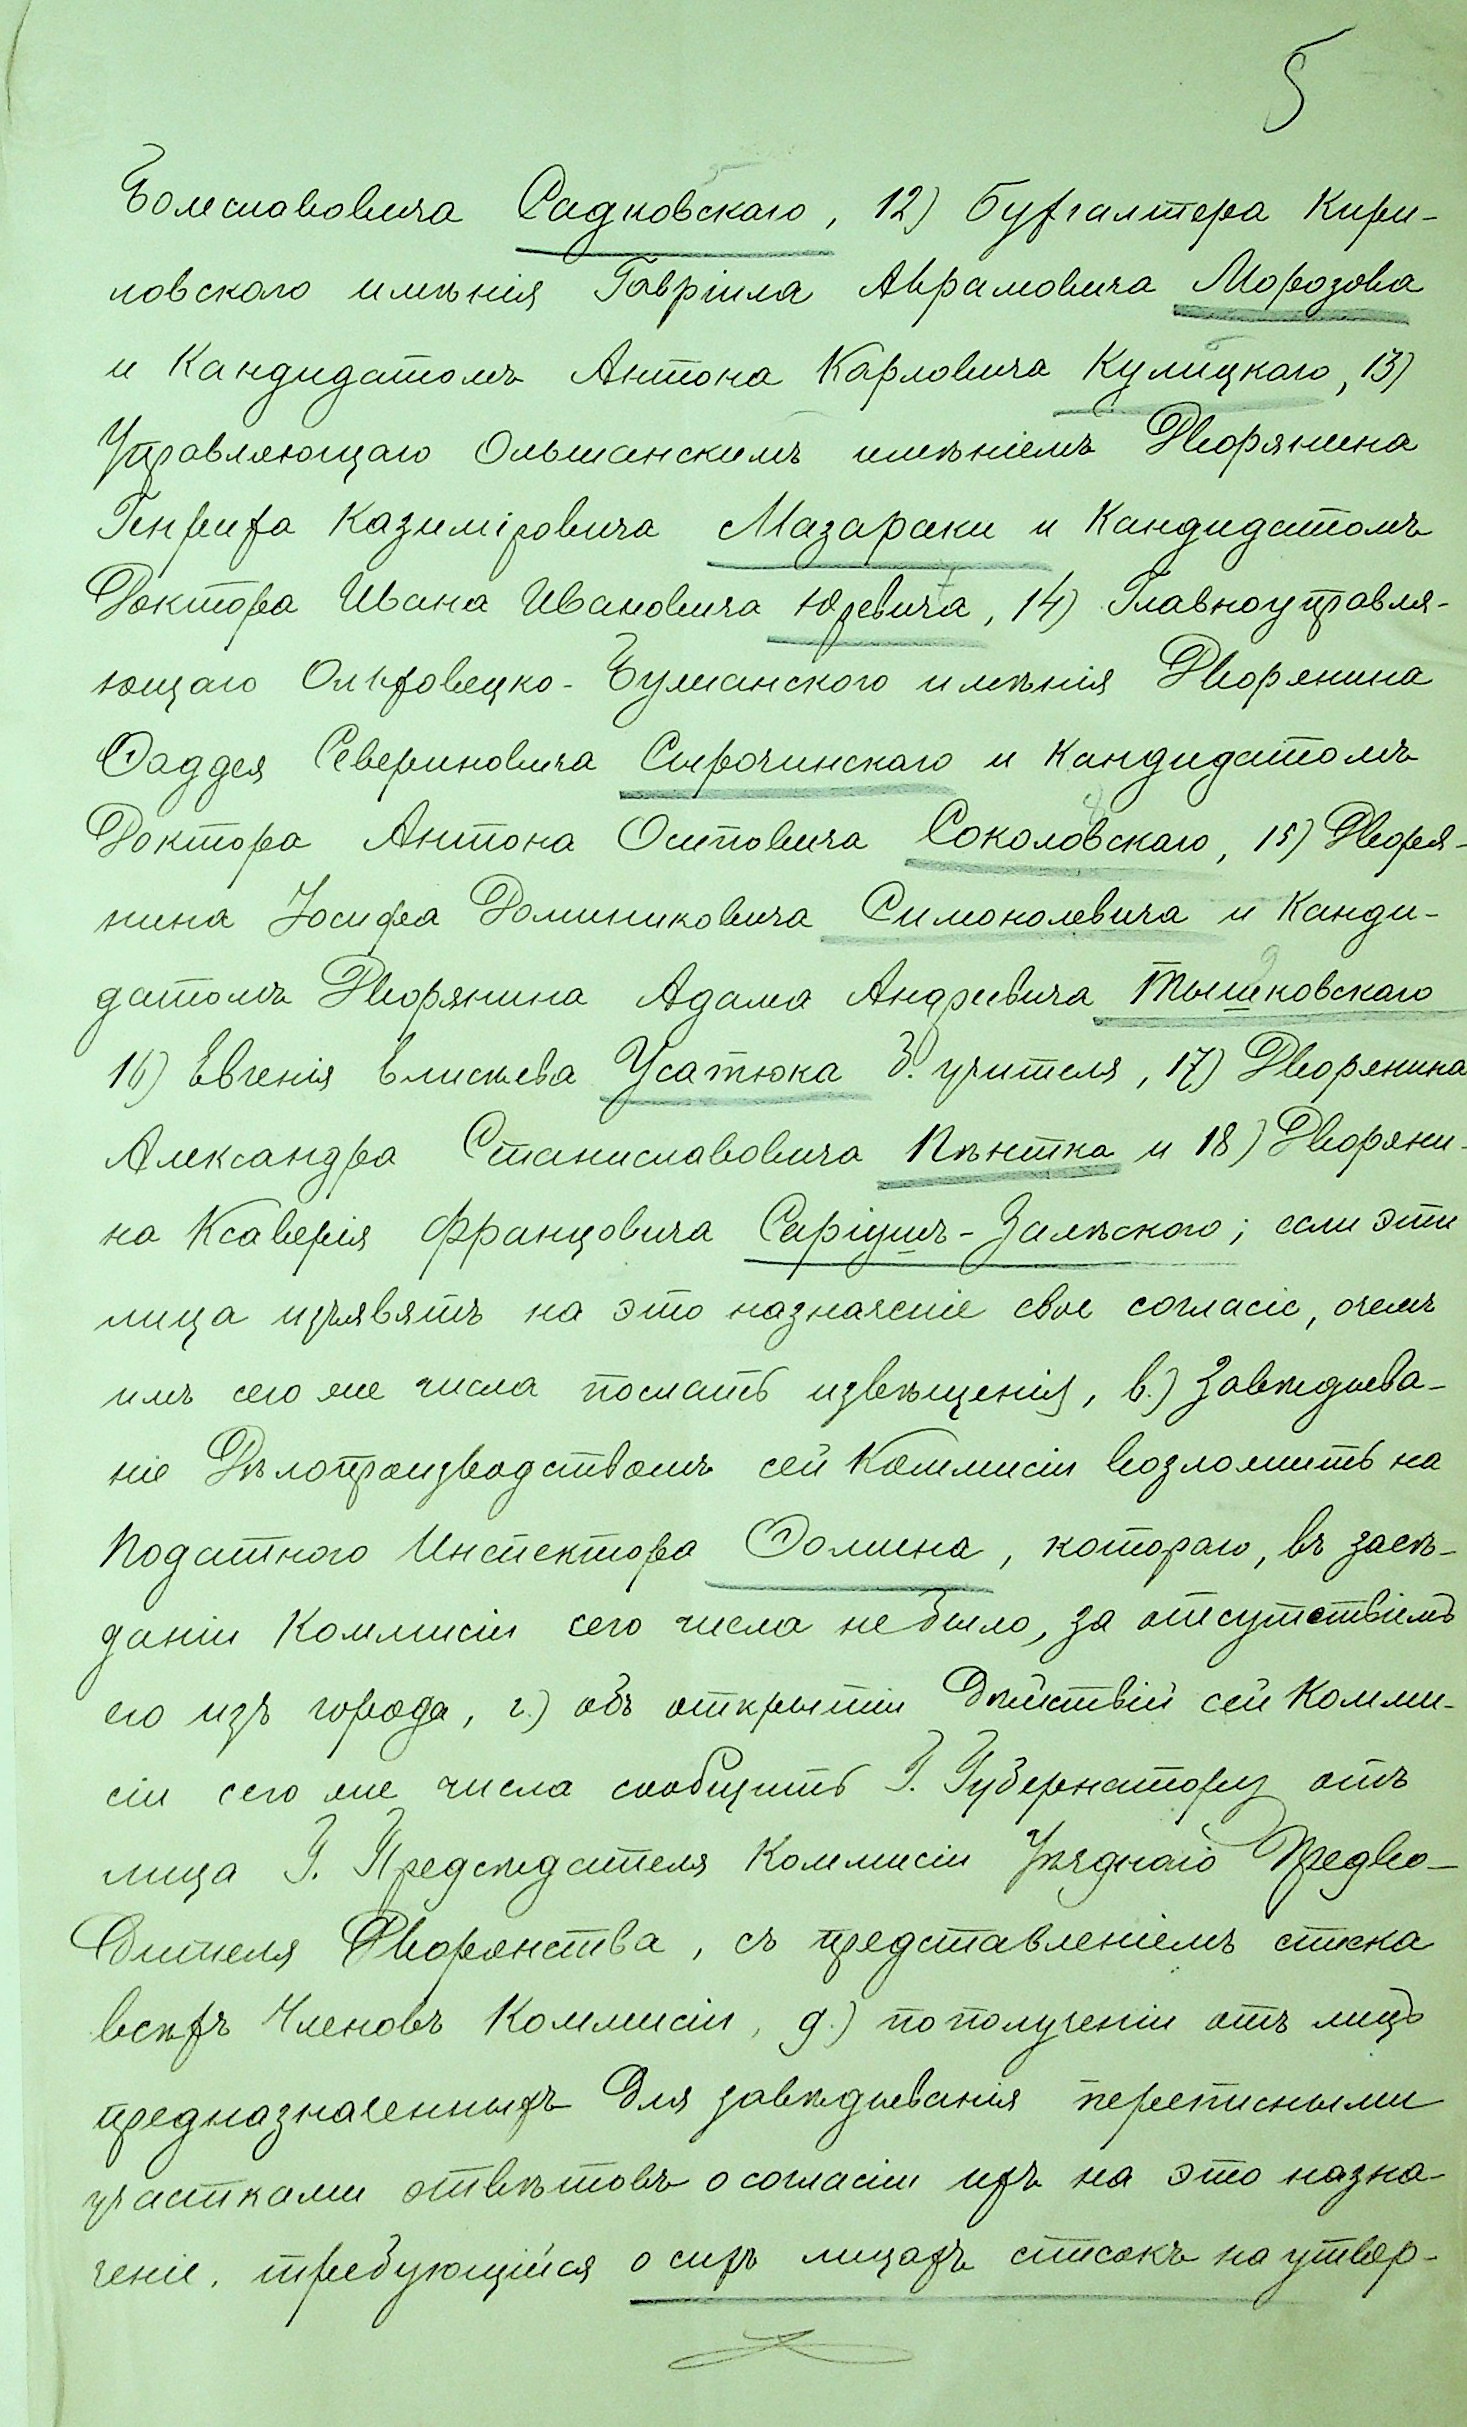 5
Болеславовича Садковскаго, 12) Бухгалтера Кири-
ловского имѣнія Гавріила Аврамовича Морозова
и Кандидатомъ Антона Карловича Кулицкаго, 13)
Управляющаго Ольшанскимъ имѣніемъ Дворянина
Генриха Казиміровича Мазараки и Кандидатомъ
Доктора Ивана Ивановича Юревича, 14) Главноуправля-
ющаго Ольховецко-Гулманского имѣнія Дворянина
Фаддея Севериновича Сырочинскаго и Кандидатомъ
Доктора Антона Осиповича Соколовскаго, 15) Дворя-
нина Іосифа Доминиковича Симонолевича и Канди-
датомъ Дворянина Адама Андреевича Тышковскаго
16) Евгенія Елисѣева Усатюка З. учителя, 17) Дворянина
Александра Станиславовича Пѣнтка и 18) Дворяни-
на Ксаверія Францовича Саріушъ-Залѣского; если эти
лица изъявятъ на это назначеніе свое согласіе, очемъ
имъ сего же числа послать извѣщенія, в.) Завѣдыва-
ніе Дѣлопроизводствомъ сей Коммисіи возложить на
Податного Инспектора Фомина, котораго, въ засѣ-
даніи Коммисіи сего числа небыло, за отсутствіемъ
его изъ города, г.) объ открытіи Дѣйствій сей Комми-
сіи сего же числа сообщить Г. Губернатору отъ
лица Г. Предсѣдателя Коммисіи Уѣзднаго Предво-
дителя Дворянства, съ представленіемъ списка
всѣхъ Членовъ Коммисіи, д.) пополученіи отъ лицъ
предназначенныхъ Для завѣдыванія переписными
участками отвѣтовъ осогласіи ихъ на это назна-
ченіе, требующійся о сихъ лицахъ списокъ на утвер-